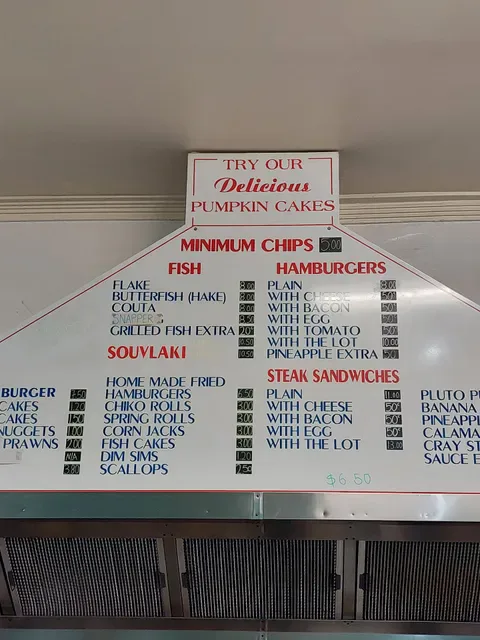 TRY OUR
Delicious
PUMPKIN CAKES
MINIMUM CHIPS 5.00
FISH
FLAKE 8.00
BUTTERFISH (HAKE) 8.00
COUTA 8.00
SNAPPER
GRILLED FISH EXTRA
SOUVLAKI
HAMBURGERS
PLAIN 8.00
WITH CHEESE 50
WITH BACON 50
WITH EGG 50
WITH TOMATO 50
WITH THE LOT 10.00
PINEAPPLE EXTRA 50
HOME MADE FRIED
HAMBURGERS
CHIKO ROLLS 3.00
SPRING ROLLS 3.00
CORN JACKS 3.00
FISH CAKES 3.00
DIM SIMS 1.20
SCALLOPS 2.50
STEAK SANDWICHES
PLAIN
WITH CHEESE 50
WITH BACON 50
WITH EGG 50
WITH THE LOT
$6.50
BURGER
CAKES
CAKES
NUGGETS
PRAWNS 2.00
N/A
3.80
PLUTO P
BANANA
PINEAPP
CALAMA
CRAY ST
SAUCE E